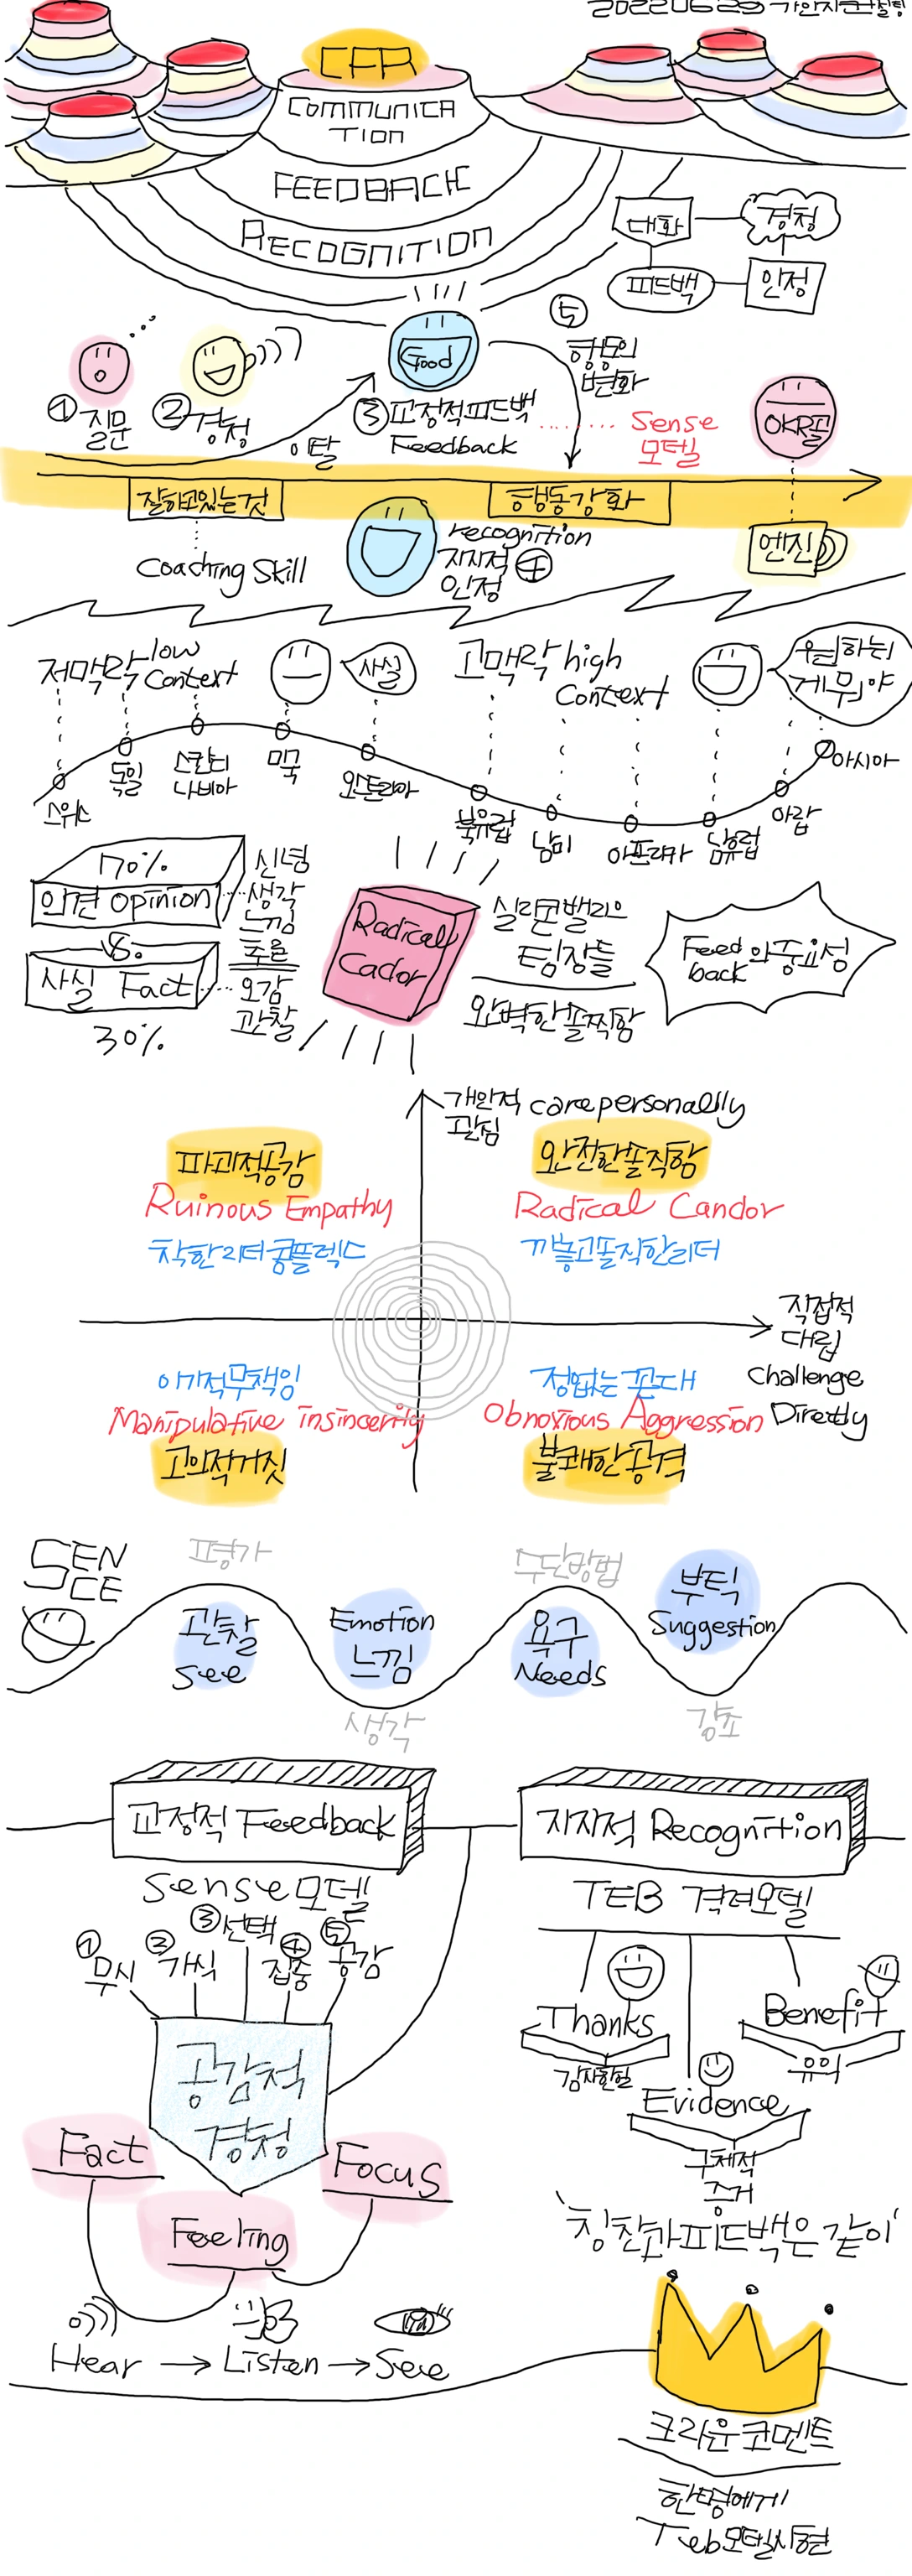 CFR
COMMUNICA
TION
FEEDBACK
RECOGNITION
대화
경청
피드백
인정
① 질문
② 경청
이탈
Good
③ 교정적피드백
Feedback
⑤
행동의
변화
Sense
모델
OKR팀
잘하고있는것
행동강화
Coaching Skill
recognition
지지적 ④
인정
엔진
저맥락 low
Context
사실
고맥락 high
Context
원하는
게 뭐야
스위스
독일
스칸디
나비아
미국
북유럽
남미
아프리카
남유럽
아랍
아시아
70%
의견 opinion
VS.
사실 Fact
30%
신념
생각
느낌
추론
오감
관찰
Radical
Cador
실리콘밸리의
팀장들
완벽한솔찍함
Feed
back의중요성
개인적 care personally
관심
파괴적공감
Ruinous Empathy
착한리더콤플렉스
완전한솔직함
Radical Candor
까놓고솔직한리더
직접적
대립
challenge
Directly
이기적무책임
Manipulative insincerity
고의적거짓
정없는 꼰대
Obnoxious Aggression
불쾌한공격
SEN
CE
평가
관찰
See
Emotion
느낌
생각
수단방법
욕구
Needs
부탁
Suggestion
강조
교정적 Feedback
Sense모델
① 무시
② 가식
③ 선택
④ 집중
⑤ 공감
공감적
경청
Fact
Feeling
Focus
Hear → Listen → See
지지적 Recognition
TEB 격려모델
Thanks
감사한일
Evidence
구체적
증거
Benefit
유익
'칭찬과피드백은같이'
크라운코멘트
한명에게
Teb모델시현